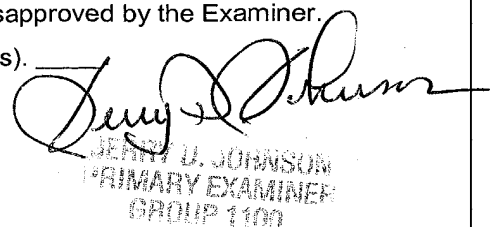 sapproved by the Examiner.
s).
Jerry D. Johnson
JERRY D. JOHNSON
PRIMARY EXAMINER
GROUP 1100